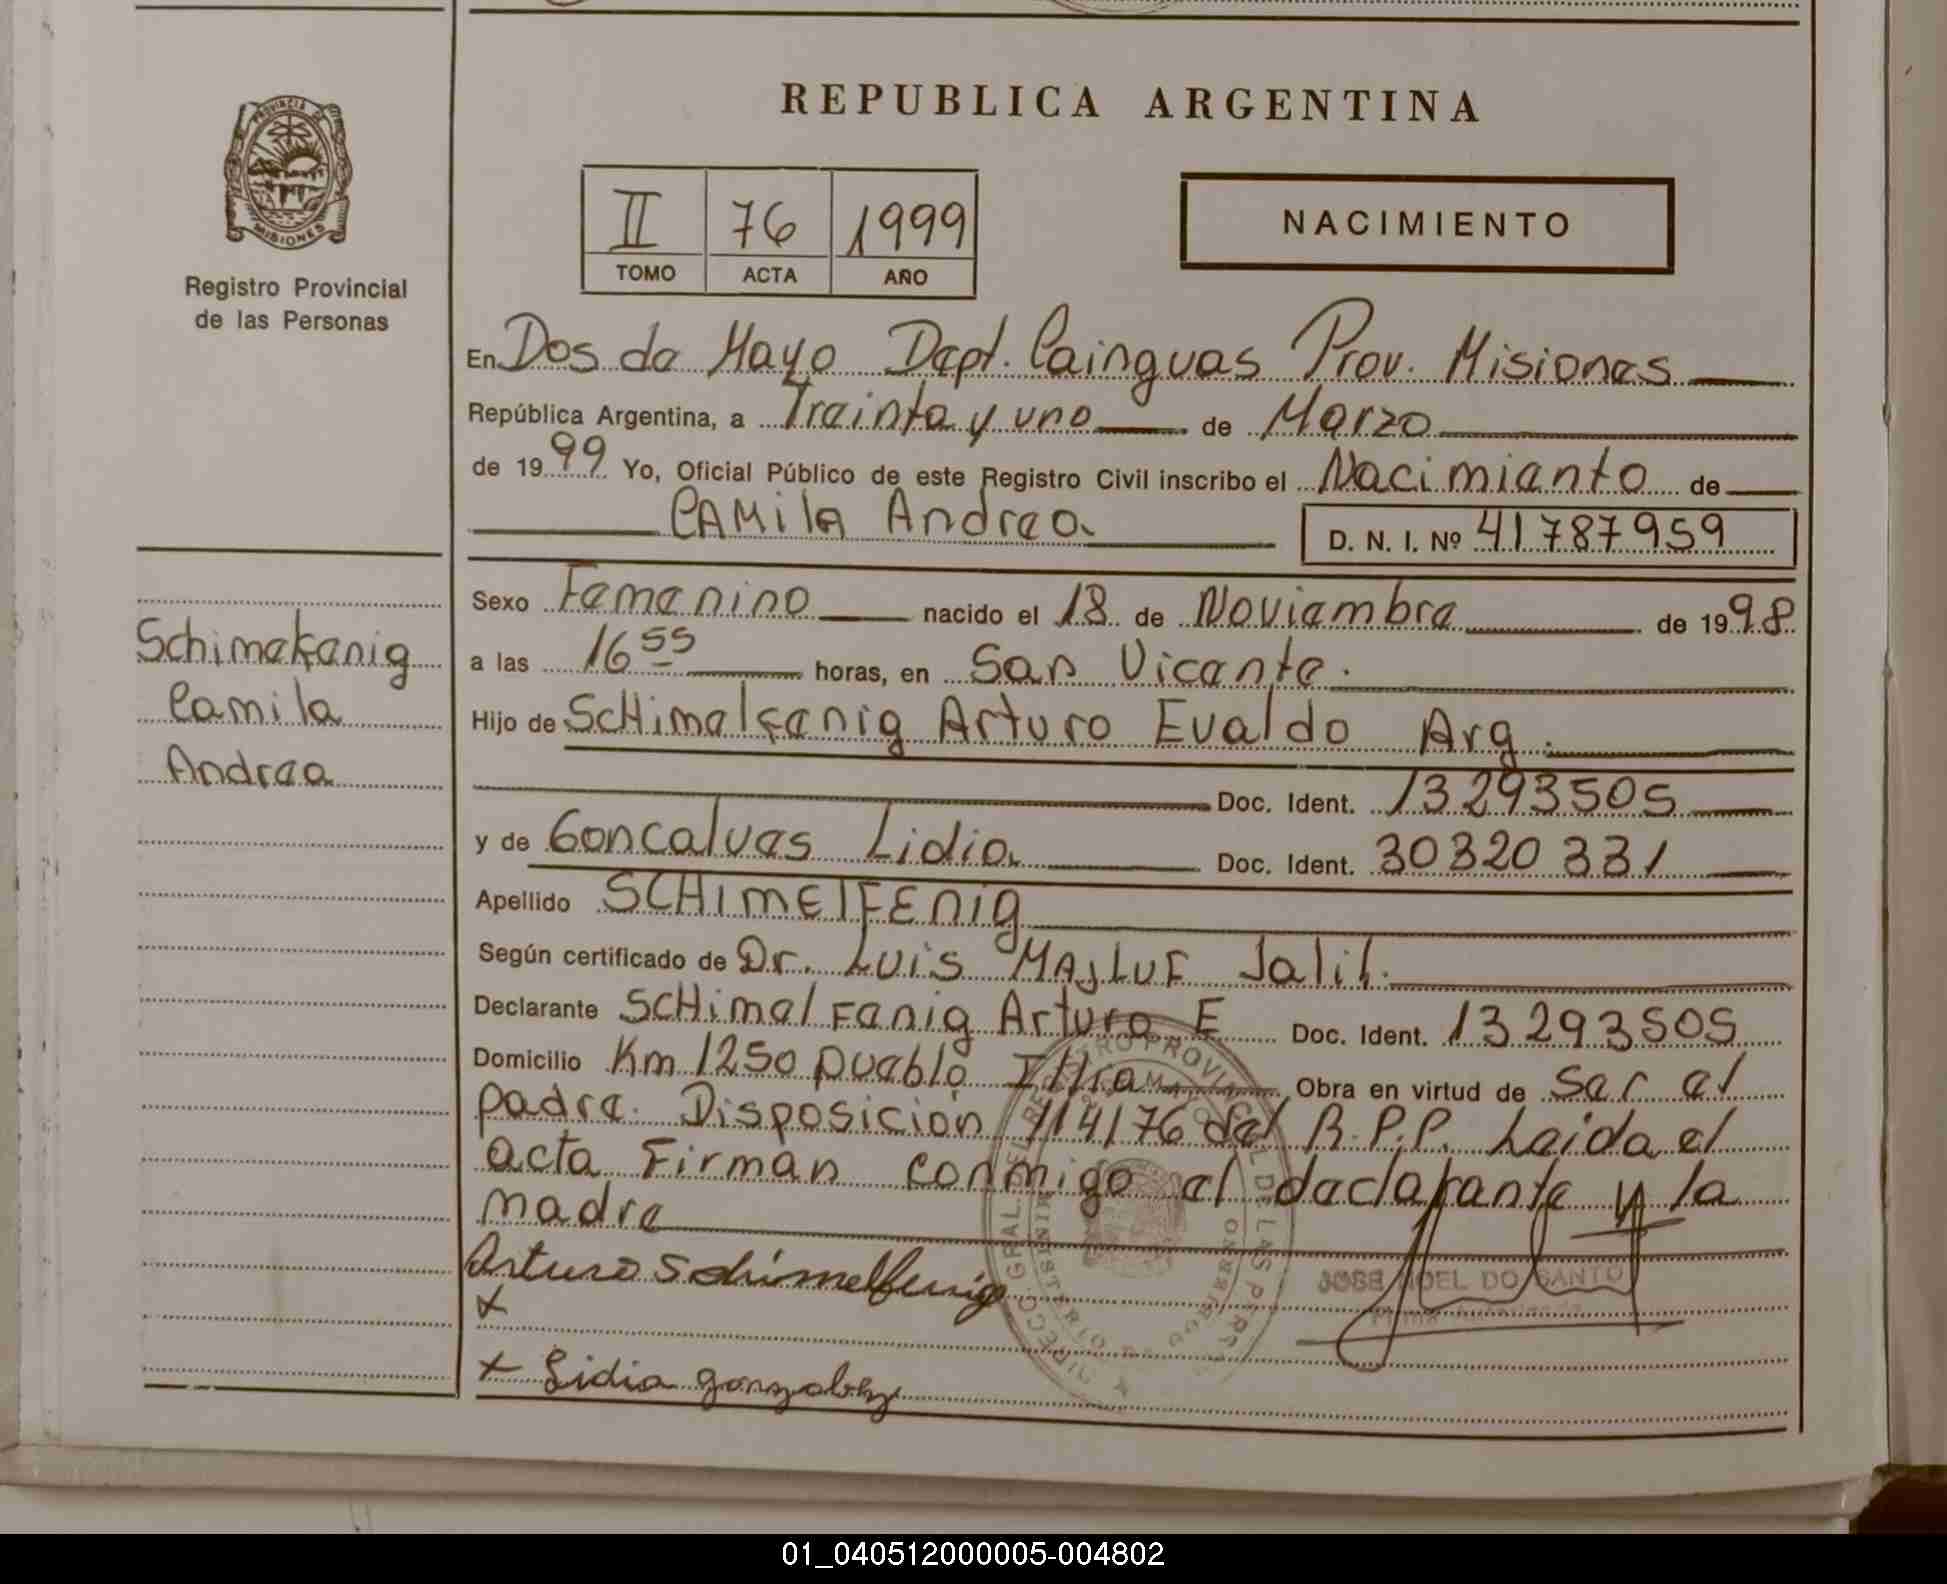 REPUBLICA ARGENTINA
PROVINCIA DE
MISIONES
Registro Provincial
de las Personas
II 76 1999
TOMO ACTA AÑO
NACIMIENTO
En Dos de Mayo Dept. Cainguas Prov. Misiones
República Argentina, a Treinta y uno de Marzo
de 1999 Yo, Oficial Público de este Registro Civil inscribo el Nacimiento de
CAMilA Andrea D. N. I. Nº 41787959
Sexo Femenino nacido el 18 de Noviembre de 1998
a las 16 55 horas, en San Vicente.
Hijo de ScHimelfenig Arturo Evaldo Arg.
Doc. Ident. 13293505
y de Goncalves Lidia Doc. Ident. 30320331
Apellido SCHIMElFEnig
Según certificado de Dr. Luis MAjLUF Jalil.
Declarante ScHimelFenig Arturo E Doc. Ident. 13293505
Domicilio Km 1250 pueblo Illia Obra en virtud de Ser el
padre. Disposición 114/76 del R.P.P. Leida el
acta Firman conmigo el declarante y la
madre
Arturo Schimelfenig
x
x Lidia gonzalvez
JOSE NOEL DO SANTO
Schimekenig
Camila
Andrea
01_040512000005-004802